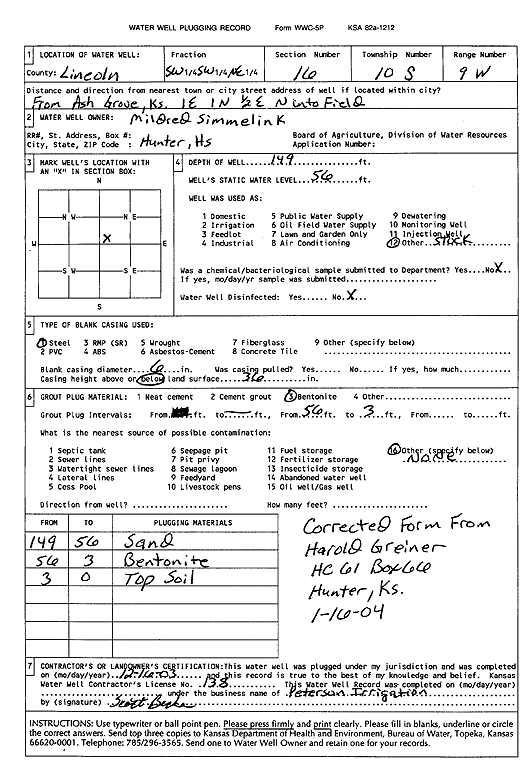 WATER WELL PLUGGING RECORD Form WWC-5P KSA 82a-1212
1 LOCATION OF WATER WELL: Fraction Section Number Township Number Range Number
County: Lincoln SW 1/4 SW 1/4 NE 1/4 16 10 S 9 W
Distance and direction from nearest town or city street address of well if located within city?
From Ash Grove, Ks. 1E 1N ½E N into Field
2 WATER WELL OWNER: Mildred Simmelink
RR#, St. Address, Box #: Board of Agriculture, Division of Water Resources
City, State, ZIP Code : Hunter, Ks Application Number:
3 MARK WELL'S LOCATION WITH AN "X" IN SECTION BOX:
N
N W N E
W X E
S W S E
S
4 DEPTH OF WELL......149......ft.
WELL'S STATIC WATER LEVEL...56......ft.
WELL WAS USED AS:
1 Domestic 5 Public Water Supply 9 Dewatering
2 Irrigation 6 Oil Field Water Supply 10 Monitoring Well
3 Feedlot 7 Lawn and Garden Only 11 Injection Well
4 Industrial 8 Air Conditioning 12 Other..Stock
Was a chemical/bacteriological sample submitted to Department? Yes....No X..
If yes, mo/day/yr sample was submitted...............
Water Well Disinfected: Yes...... No.X...
5 TYPE OF BLANK CASING USED:
1 Steel 3 RMP (SR) 5 Wrought 7 Fiberglass 9 Other (specify below)
2 PVC 4 ABS 6 Asbestos-Cement 8 Concrete Tile ........................
Blank casing diameter...6....in. Was casing pulled? Yes..... No...... If yes, how much......
Casing height above or below land surface....36........in.
6 GROUT PLUG MATERIAL: 1 Neat cement 2 Cement grout 3 Bentonite 4 Other...............
Grout Plug Intervals: From ft. to ft., From.56 to .3.ft., From...... to......ft.
What is the nearest source of possible contamination:
1 Septic tank 6 Seepage pit 11 Fuel storage 16 Other (specify below)
2 Sewer lines 7 Pit privy 12 Fertilizer storage NONE
3 Watertight sewer lines 8 Sewage lagoon 13 Insecticide storage
4 Lateral lines 9 Feedyard 14 Abandoned water well
5 Cess Pool 10 Livestock pens 15 Oil well/Gas well
Direction from well? ................ How many feet? ................
FROM TO PLUGGING MATERIALS
149 56 Sand
56 3 Bentonite
3 0 Top Soil
Corrected Form From
Harold Greiner
HC 61 Box 66
Hunter, Ks.
1-16-04
7 CONTRACTOR'S OR LANDOWNER'S CERTIFICATION: This water well was plugged under my jurisdiction and was completed
on (mo/day/year) 12-16-03 and this record is true to the best of my knowledge and belief. Kansas
Water Well Contractor's License No. .138 This Water Well Record was completed on (mo/day/year)
under the business name of Peterson Irrigation
by (signature) Scott
INSTRUCTIONS: Use typewriter or ball point pen. Please press firmly and print clearly. Please fill in blanks, underline or circle
the correct answers. Send top three copies to Kansas Department of Health and Environment, Bureau of Water, Topeka, Kansas
66620-0001. Telephone: 785/296-3565. Send one to Water Well Owner and retain one for your records.